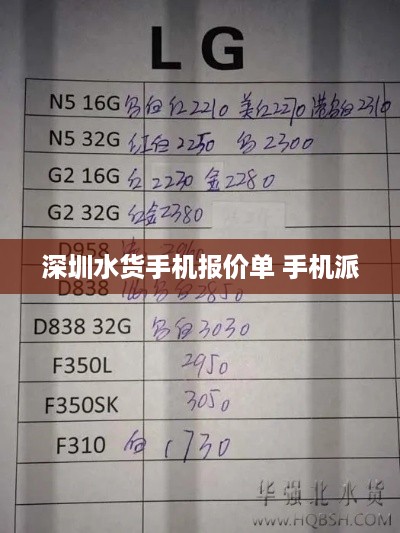 LG
N5 16G 白红2210 美红2270 港 白2310
N5 32G 红白2250 2300
G2 16G 红2230 金2280
G2 32G 红金2380
D958
深圳水货手机报价单 手机派
D838 白2850
D838 32G 白3030
F350L 2950
F350SK 3050
F310 白 1730
华强北水货
WWW.HQBSH.COM